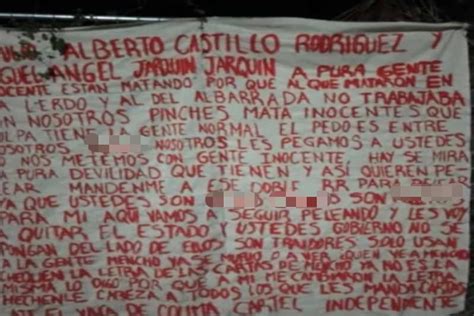 ALBERTO CASTILLO RODRIGUEZ Y
ANGEL JARQUIN JARQUIN A PURA GENTE
OCENTE ESTAN MATANDO POR QUE AL QUE MATARON EN
A LERDO Y AL DEL ALBARRADA NO TRABAJABA
ON NOSOTROS PINCHES MATA INOCENTES QUE
ULPA TIEN GENTE NORMAL EL PEDO ES ENTRE
OSOTROS NOSOTROS LES PEGAMOS A USTEDES
NOS METEMOS CON GENTE INOCENTE HAY SE MIRA
A PURA DEVILIDAD QUE TIENEN Y ASI QUIEREN PE
LEAR MANDENME A ESE DOBLE RR PARA
YA QUE USTEDES SON SON
PARA MI AQUI VAMOS A SEGUIR PELEANDO Y LES VOY
QUITAR EL ESTADO Y USTEDES GOBIERNO NO SE
PONGAN DEL LADO DE ELLOS SON TRAIDORES SOLO USAN
A LA GENTE MENCHO YA SE MURIO O A VER QUIEN
LA LETRA DE LAS CARTAS DE YA NO ES LA
MISMA LO DIGO POR QUE A MI ME LETRA
HECHENLE CABEZA A TODOS LOS QUE LES MANDA CARTAS
DE COLIMA CARTEL INDEPENDIENTE